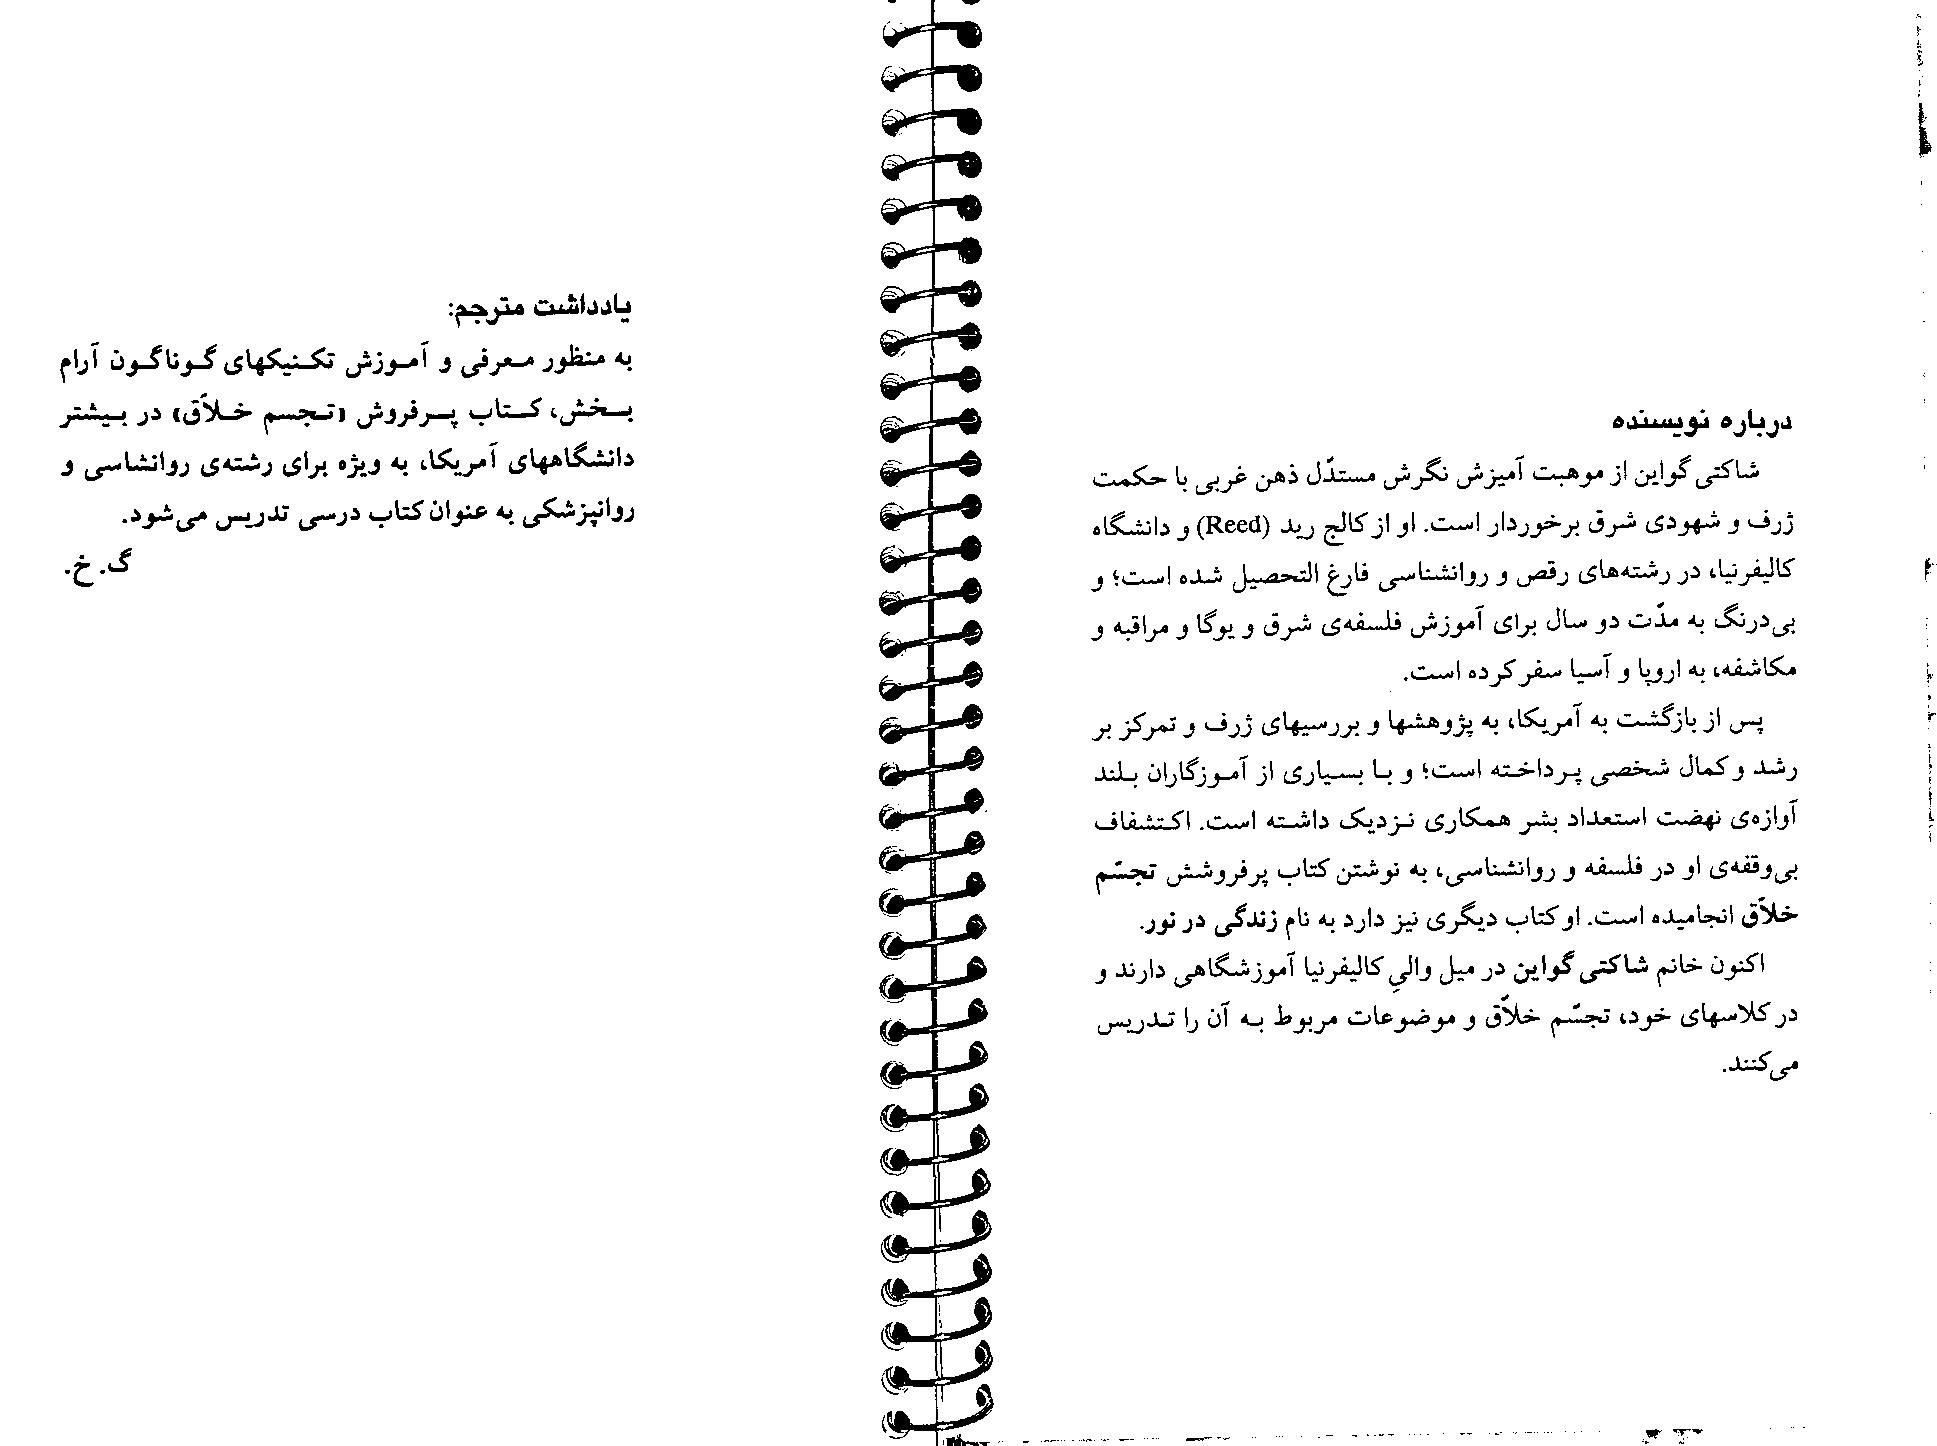 درباره نویسنده
شاکتی گواین از موهبت آمیزش نگرش مستدّل ذهن غربی با حکمت
ژرف و شهودی شرق برخوردار است. او از کالج رید (Reed) و دانشگاه
کالیفرنیا، در رشته‌های رقص و روانشناسی فارغ التحصیل شده است؛ و
بی‌درنگ به مدّت دو سال برای آموزش فلسفه‌ی شرق و یوگا و مراقبه و
مکاشفه، به اروپا و آسیا سفر کرده است.
پس از بازگشت به آمریکا، به پژوهشها و بررسیهای ژرف و تمرکز بر
رشد و کمال شخصی پرداخته است؛ و با بسیاری از آموزگاران بلند
آوازه‌ی نهضت استعداد بشر همکاری نزدیک داشته است. اکتشفاف
بی‌وقفه‌ی او در فلسفه و روانشناسی، به نوشتن کتاب پرفروشش تجسّم
خلاّق انجامیده است. او کتاب دیگری نیز دارد به نام زندگی در نور.
اکنون خانم شاکتی گواین در میل والیِ کالیفرنیا آموزشگاهی دارند و
در کلاسهای خود، تجسّم خلاّق و موضوعات مربوط به آن را تدریس
می‌کنند.
یادداشت مترجم:
به منظور معرفی و آموزش تکنیکهای گوناگون آرام
بخش، کتاب پرفروش «تجسم خلاّق» در بیشتر
دانشگاههای آمریکا، به ویژه برای رشته‌ی روانشاسی و
روانپزشکی به عنوان کتاب درسی تدریس می‌شود.
گ. خ.